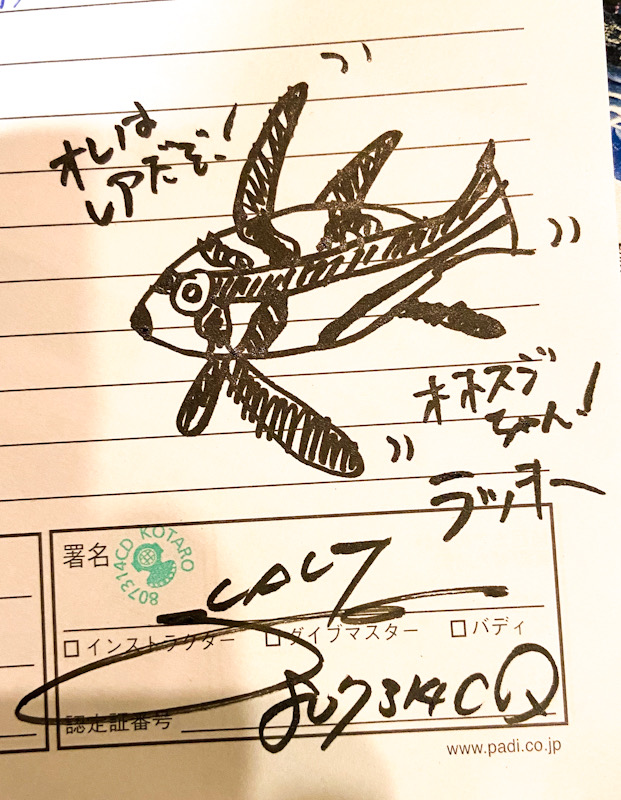 オレは
レアだぞ!
オオスジ
ちゃん!
ラッキー
署名
807314CD KOTARO
インストラクター ダイブマスター バディ
認定証番号
www.padi.co.jp